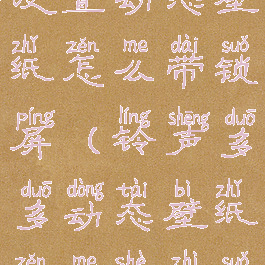 设置动态壁
zhǐ zěn me dài suǒ
纸怎么带锁
píng líng shēng duō
屏(铃声多
duō dòng tài bì zhǐ
多动态壁纸
zěn me shè zhì suǒ